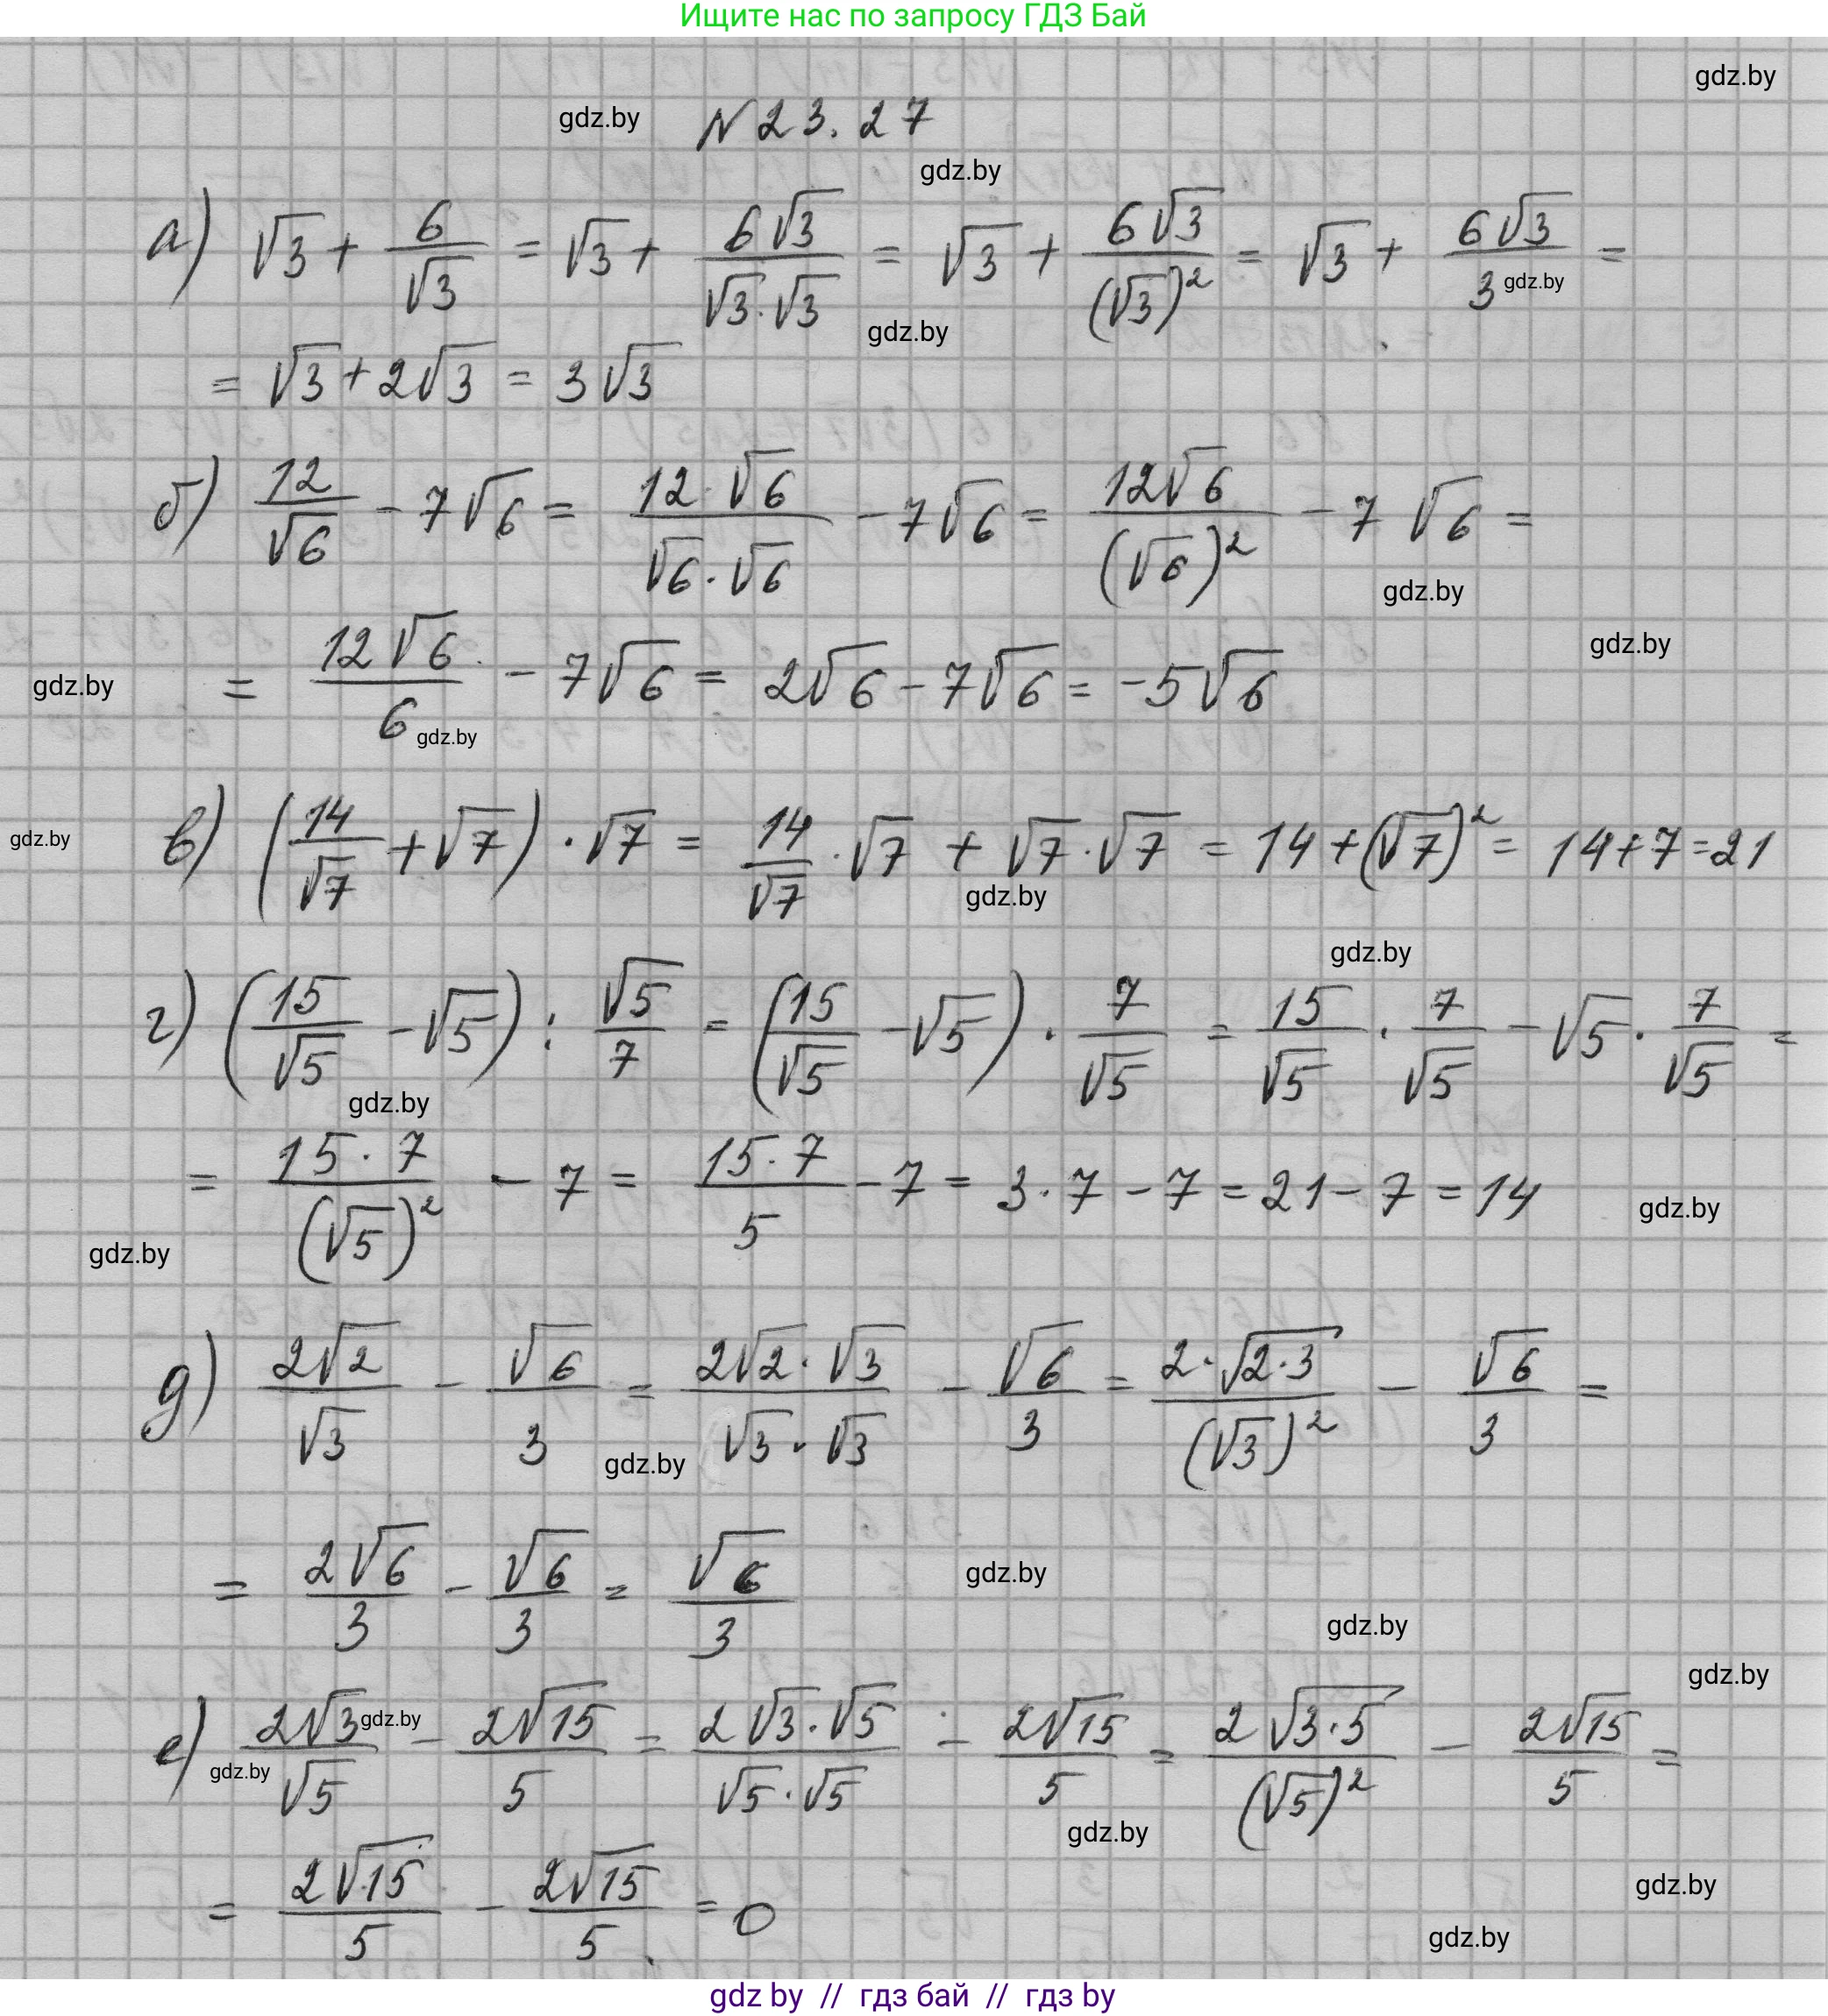 Ищите нас по запросу ГДЗ Бай
gdz.by
gdz.by N 23.27
gdz.by
а) √3 + 6/√3 = √3 + 6√3/(√3·√3) = √3 + 6√3/(√3)² = √3 + 6√3/3 =
gdz.by
gdz.by
= √3 + 2√3 = 3√3
б) 12/√6 - 7√6 = 12·√6/(√6·√6) - 7√6 = 12√6/(√6)² - 7√6 =
gdz.by
gdz.by
gdz.by = 12√6/6 - 7√6 = 2√6 - 7√6 = -5√6
gdz.by
gdz.by в) (14/√7 + √7)·√7 = 14/√7·√7 + √7·√7 = 14 + (√7)² = 14+7=21
gdz.by
gdz.by
г) (15/√5 - √5) : √5/7 = (15/√5 - √5)·7/√5 = 15/√5·7/√5 - √5·7/√5 =
gdz.by
= 15·7/(√5)² - 7 = 15·7/5 - 7 = 3·7 - 7 = 21 - 7 = 14
gdz.by
gdz.by
д) 2√2/√3 - √6/3 = 2√2·√3/(√3·√3) - √6/3 = 2·√2·3/(√3)² - √6/3 =
gdz.by
= 2√6/3 - √6/3 = √6/3
gdz.by
gdz.by
gdz.by
е) 2√3/√5 - 2√15/5 = 2√3·√5/(√5·√5) - 2√15/5 = 2√3·5/(√5)² - 2√15/5 =
gdz.by
gdz.by
gdz.by
= 2√15/5 - 2√15/5 = 0
gdz.by
gdz.by
gdz by // гдз бай // гдз by